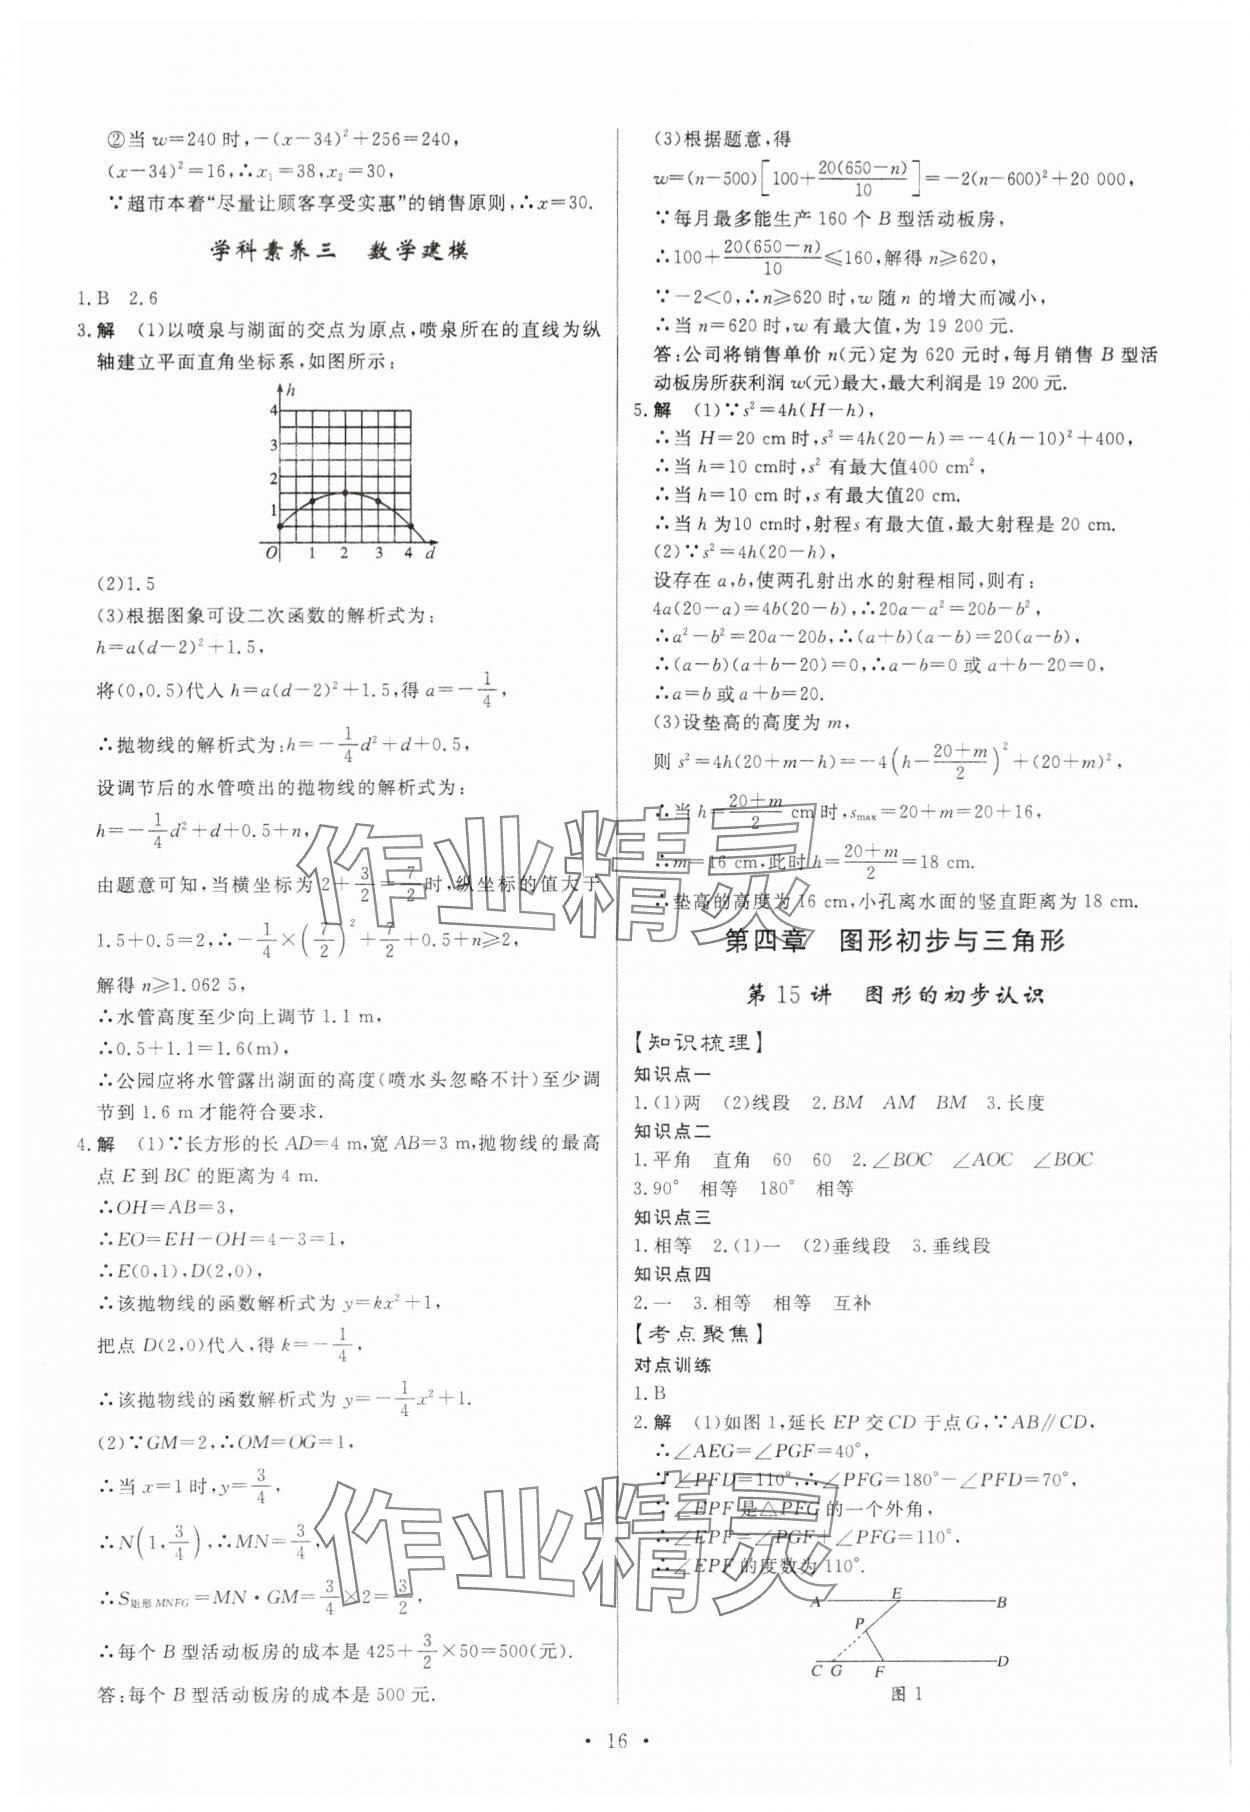 ②当 w=240 时,-(x-34)²+256=240,
(x-34)²=16,∴x₁=38,x₂=30,
∵超市本着“尽量让顾客享受实惠”的销售原则,∴x=30.
学科素养三 数学建模
1.B 2.6
3.解 (1)以喷泉与湖面的交点为原点,喷泉所在的直线为纵
轴建立平面直角坐标系,如图所示:
h
4
3
2
1
O 1 2 3 4 d
(2)1.5
(3)根据图象可设二次函数的解析式为:
h=a(d-2)²+1.5,
将(0,0.5)代入 h=a(d-2)²+1.5,得 a=-1/4,
∴抛物线的解析式为:h=-1/4d²+d+0.5,
设调节后的水管喷出的抛物线的解析式为:
h=-1/4d²+d+0.5+n,
由题意可知,当横坐标为 2+3/2=7/2时,纵坐标的值大于
1.5+0.5=2,∴-1/4×(7/2)²+7/2+0.5+n≥2,
解得 n≥1.062 5,
∴水管高度至少向上调节 1.1 m,
∴0.5+1.1=1.6(m),
∴公园应将水管露出湖面的高度(喷水头忽略不计)至少调
节到 1.6 m 才能符合要求.
4.解 (1)∵长方形的长 AD=4 m,宽 AB=3 m,抛物线的最高
点 E 到 BC 的距离为 4 m.
∴OH=AB=3,
∴EO=EH-OH=4-3=1,
∴E(0,1),D(2,0),
∴该抛物线的函数解析式为 y=kx²+1,
把点 D(2,0)代入,得 k=-1/4,
∴该抛物线的函数解析式为 y=-1/4x²+1.
(2)∵GM=2,∴OM=OG=1,
∴当 x=1 时,y=3/4,
∴N(1,3/4),∴MN=3/4,
∴S矩形MNFG=MN·GM=3/4×2=3/2,
∴每个 B 型活动板房的成本是 425+3/2×50=500(元).
答:每个 B 型活动板房的成本是 500 元.
(3)根据题意,得
w=(n-500)[100+20(650-n)/10]=-2(n-600)²+20 000,
∵每月最多能生产 160 个 B 型活动板房,
∴100+20(650-n)/10≤160,解得 n≥620,
∵-2<0,∴n≥620 时,w 随 n 的增大而减小,
∴当 n=620 时,w 有最大值,为 19 200 元.
答:公司将销售单价 n(元)定为 620 元时,每月销售 B 型活
动板房所获利润 w(元)最大,最大利润是 19 200 元.
5.解 (1)∵s²=4h(H-h),
∴当 H=20 cm 时,s²=4h(20-h)=-4(h-10)²+400,
∴当 h=10 cm时,s² 有最大值400 cm²,
∴当 h=10 cm 时,s有最大值20 cm.
∴当 h 为10 cm时,射程s 有最大值,最大射程是 20 cm.
(2)∵s²=4h(20-h),
设存在 a,b,使两孔射出水的射程相同,则有:
4a(20-a)=4b(20-b),∴20a-a²=20b-b²,
∴a²-b²=20a-20b,∴(a+b)(a-b)=20(a-b),
∴(a-b)(a+b-20)=0,∴a-b=0 或 a+b-20=0,
∴a=b 或 a+b=20.
(3)设垫高的高度为 m,
则 s²=4h(20+m-h)=-4(h-20+m/2)²+(20+m)²,
∴当 h=20+m/2 cm 时,smax=20+m=20+16,
∴m=16 cm,此时 h=20+m/2=18 cm.
∴垫高的高度为 16 cm,小孔离水面的竖直距离为 18 cm.
第四章 图形初步与三角形
第 15 讲 图形的初步认识
【知识梳理】
知识点一
1.(1)两 (2)线段 2.BM AM BM 3.长度
知识点二
1.平角 直角 60 60 2.∠BOC ∠AOC ∠BOC
3.90° 相等 180° 相等
知识点三
1.相等 2.(1)一 (2)垂线段 3.垂线段
知识点四
2.一 3.相等 相等 互补
【考点聚焦】
对点训练
1.B
2.解 (1)如图 1,延长 EP 交 CD 于点G,∵AB∥CD,
∴∠AEG=∠PGF=40°,
∵∠PFD=110°,∴∠PFG=180°-∠PFD=70°,
∵∠EPF 是△PFG 的一个外角,
∴∠EPF=∠PGF+∠PFG=110°,
∴∠EPF 的度数为 110°.
A E B
P
C G F D
图 1
作业精灵
作业精灵
• 16 •